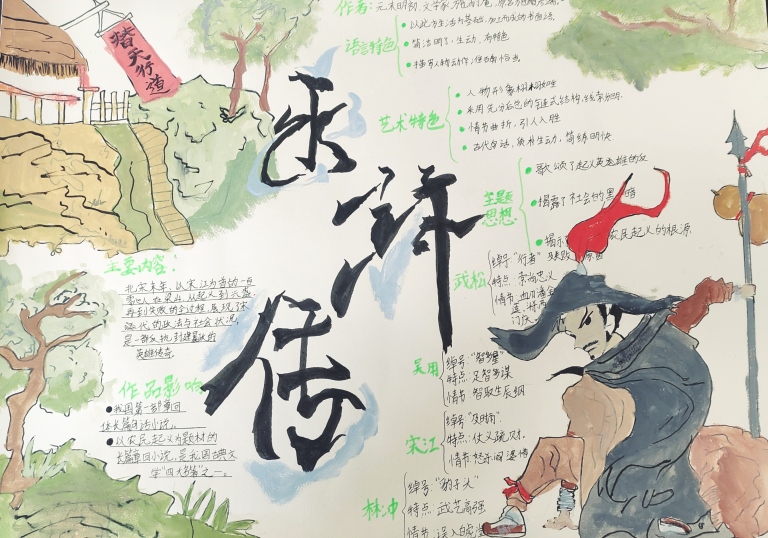 替天行道
水浒传
作者：元末明初，文学家
语言特色
以北方生活为基础，加工而成的书面语
简洁明了，生动，有特色
描写人物动作，
艺术特色
人物形象栩栩如生
采用先分后总的链式结构，线索分明.
情节曲折，引人入胜
古代白话，质朴生动，简练明快
主题思想
歌颂了起义英雄的反
揭露了社会的黑暗
揭示 农民起义的根源
主要内容：
北宋末年，以宋江为首的一百
零八人在梁山，从起义到兴盛
再到失败的全过程，展现了宋
代的政治与社会状况，
是一群反抗到建义的
英雄传奇.
作品影响
我国第一部章回
体长篇白话小说.
以农民起义为题材的
长篇章回小说，是我国古典文
学“四大名著”之一。
武松
绰号“行者”
特点：崇尚忠义
情节：血刃潘金
莲，
吴用
绰号“智多星”
特点：足智多谋
情节：智取生辰纲
宋江
绰号“及时雨”
特点：仗义疏财.
情节：怒杀阎婆惜
林冲
绰号“豹子头”
特点：武艺高强
情节：误入白虎堂